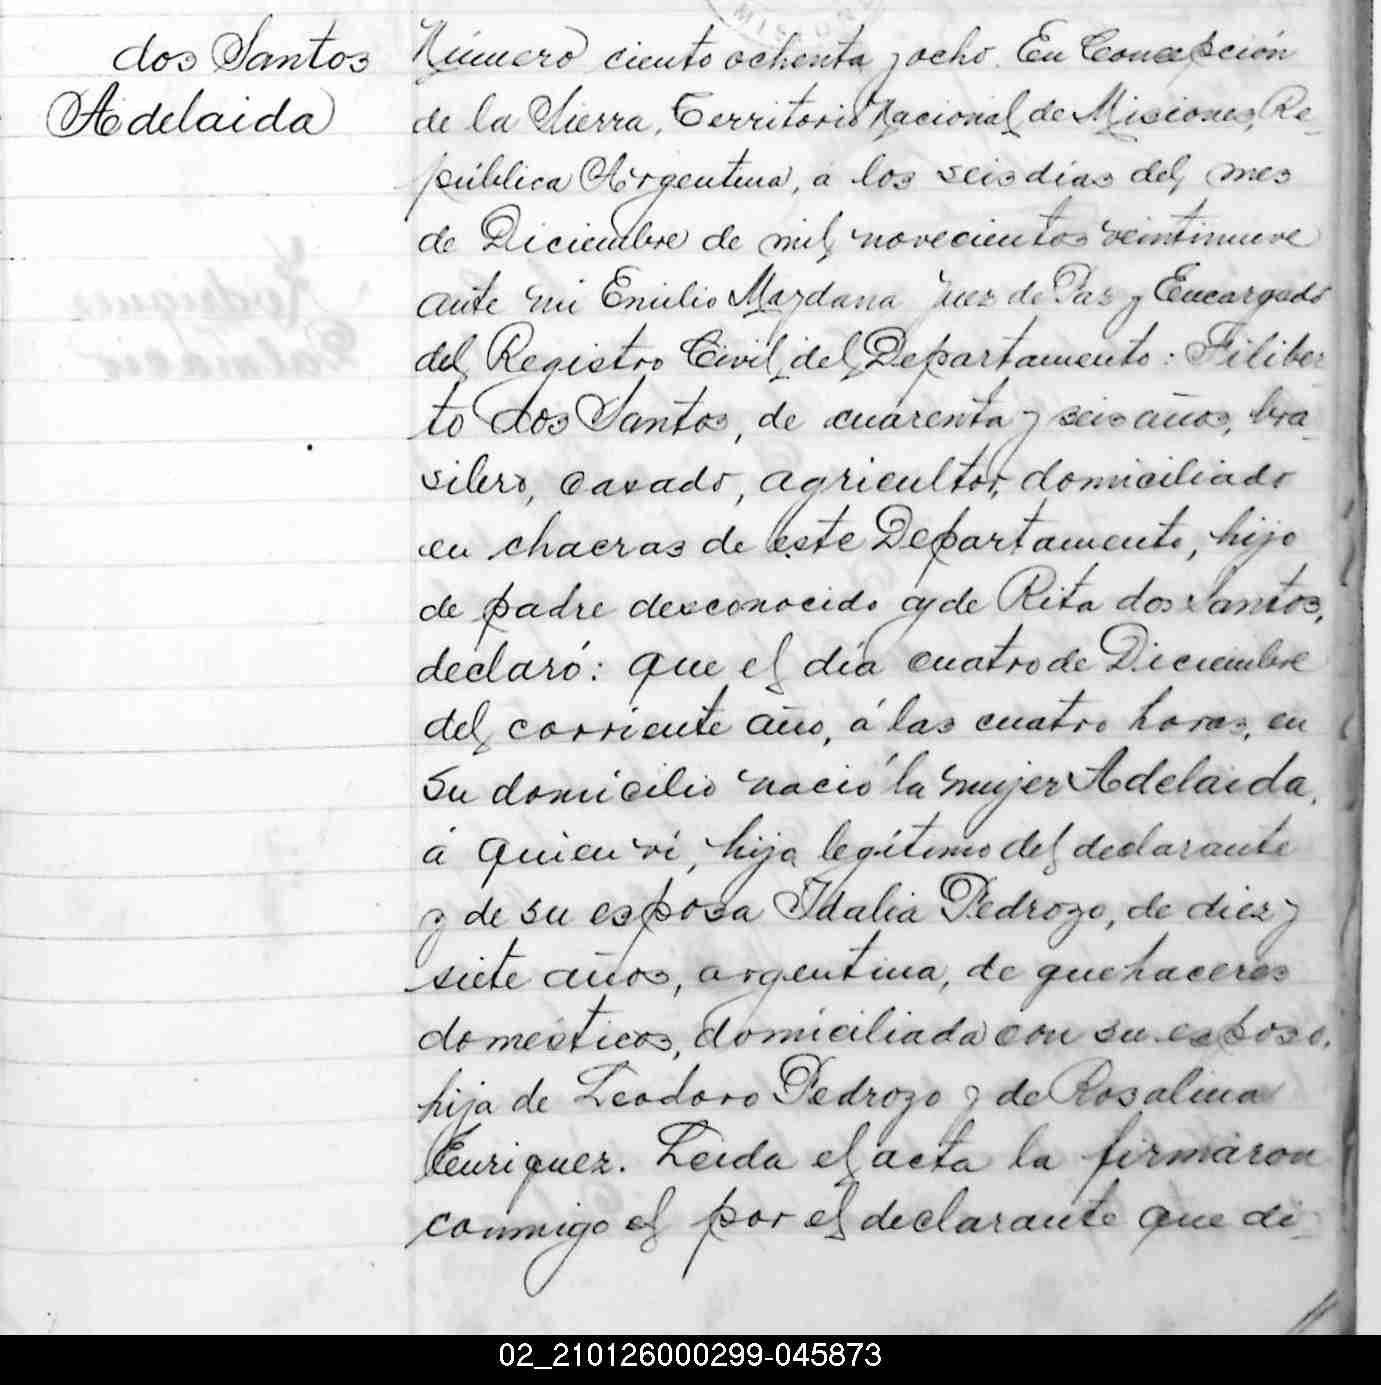 dos Santos
Adelaida
Número ciento ochenta y ocho. En Concepción
de la Sierra, Territorio Nacional de Misiones, Re-
pública Argentina, á los seis días del mes
de Diciembre de mil novecientos veintinueve
ante mi Emilio Maydana Juez de Paz y Encargado
del Registro Civil del Departamento: Filiber-
to dos Santos, de cuarenta y seis años, bra-
silero, casado, agricultor, domiciliado
en chacras de este Departamento, hijo
de padre desconocido y de Rita dos Santos,
declaró: que el día cuatro de Diciembre
del corriente año, á las cuatro horas, en
su domicilio nació la mujer Adelaida,
á quien ví, hija legítima del declarante
y de su esposa Idalia Pedrozo, de diez y
siete años, argentina, de quehaceres
domésticos, domiciliada con su esposo,
hija de Leodoro Pedrozo y de Rosalina
Enriquez. Leida el acta la firmaron
conmigo el por el declarante que di-
02_210126000299-045873